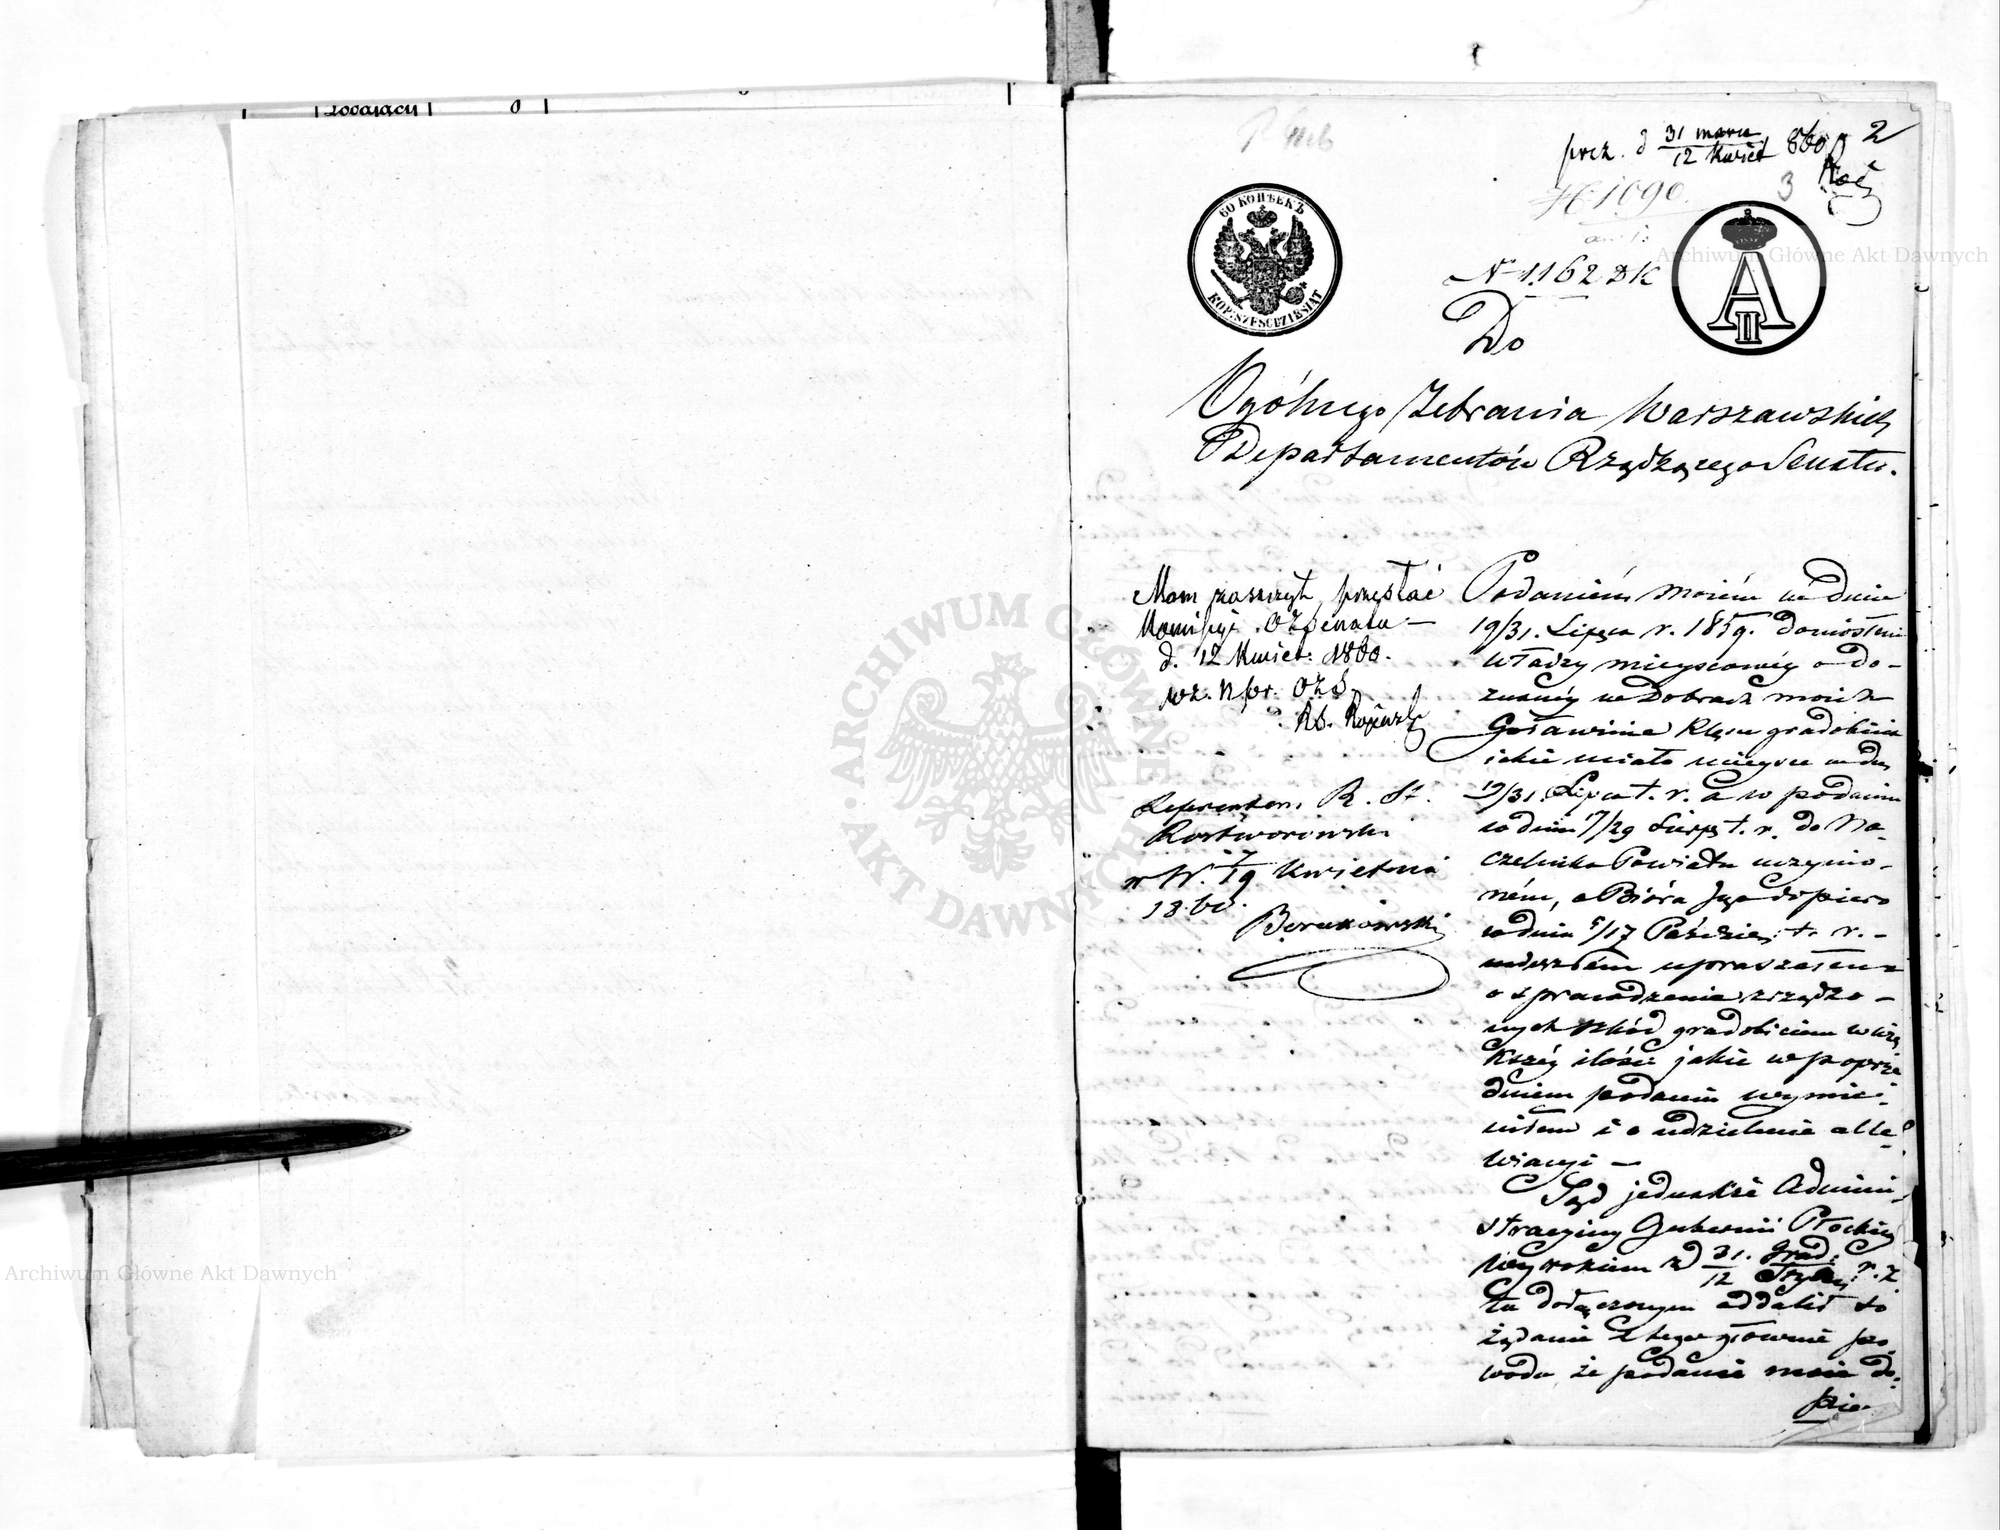 prez. d 31 marca / 12 Kwiet 860 2
3
H 1090.
60 КОПѢЕКЪ
KOP. SZESĆDZIESIĄT
A II
N 1162 DK
Do
Ogólnego Zebrania Warszawskich
Departamentów Rządzącego Senatu.
Mam zaszczyt przesłać
Komisyi OZSenatu —
d. 12 Kwiet: 1860.
wz. N pr. OZS.
Referentem R. St.
Rostworowski
w W. 7/19 Kwietnia
1860.
Podaniem moiém w dniu
19/31. Lipca r. 1859. doniosłem
władzy mieyscowéy o do-
znanéy w Dobrach moich
Goławinie klęsce gradobicia
iakie miało mieysce w dn.
19/31. Lipca t. r. a w podaniu
w dniu 17/29 Sierp. t. r. do Na-
czelnika Powiatu uczynio-
ném, a z Bióra Jego dopiero
w dniu 5/17 Paździer. t. r. –
upraszałem
o sprawdzenie zrządzo-
nych szkód gradobiciem w wię
kszéy ilości jakie w poprze
dniem podaniu wymie-
niłem i o udzielenie alle-
wiacyi —
Sąd jednakże Admini-
stracyiny Gubernii Płockiéy
Wyrokiem z d 31. Grud. / 12 Stycz. r. z
tu dołączonym oddalił to
żądanie z tego głównie po-
wodu, że podanie moie do-
pie-
Archiwum Główne Akt Dawnych
ARCHIWUM GŁÓWNE AKT DAWNYCH
Archiwum Główne Akt Dawnych